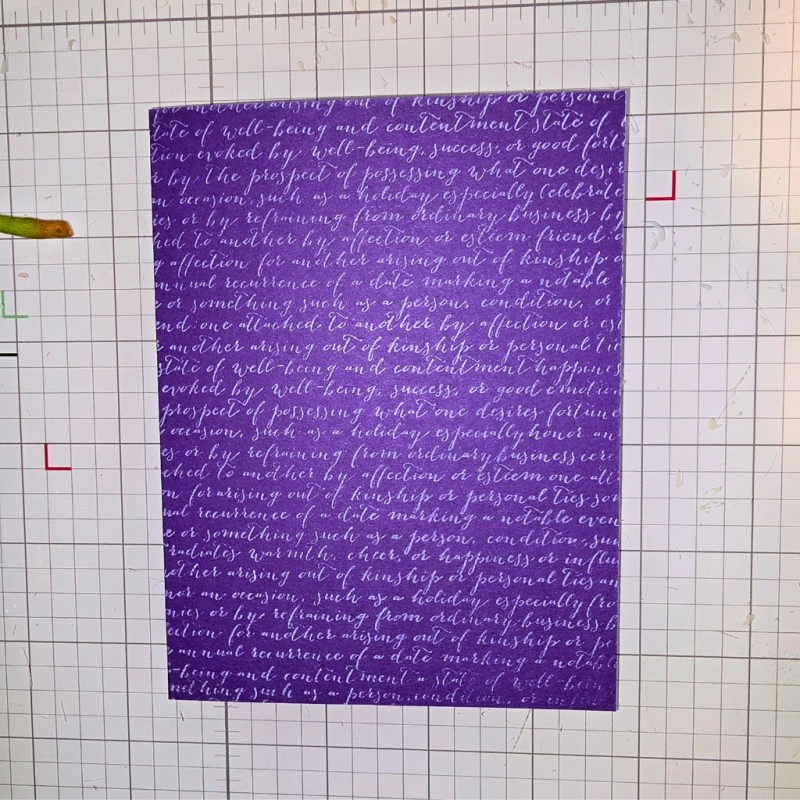 another arising out of kinship or personal
tate of well-being and contentment state of
tion evoked by well-being, success, or good fort
r by the prospect of possessing what one desir
an occasion, such as a holiday especially Celebrate
ies or by refraining from ordinary business by
hed to another by affection or esteem friend
g affection for another arising out of kinship o
nnual recurrence of a date marking a notable
e or something such as a person, condition, or
end one attached to another by affection or est
r another arising out of kinship or personal tie
state of well-being and contentment happines
evoked by well-being, success, or good emotion
prospect of possessing what one desires fortune
occasion, such as a holiday especially honor an
es or by refraining from ordinary business cere
ched to another by affection or esteem one
n for arising out of kinship or personal ties
ual recurrence of a date marking a notable even
e or something such as a person, condition,
radiates warmth, cheer, or happiness or influ
ther arising out of kinship or personal ties
nor an occasion, such as a holiday especially
nies or by refraining from ordinary business b
ection for another arising out of kinship or pe
annual recurrence of a date marking a notable
-being and contentment a state of well-bein
mething such as a person, condition, or